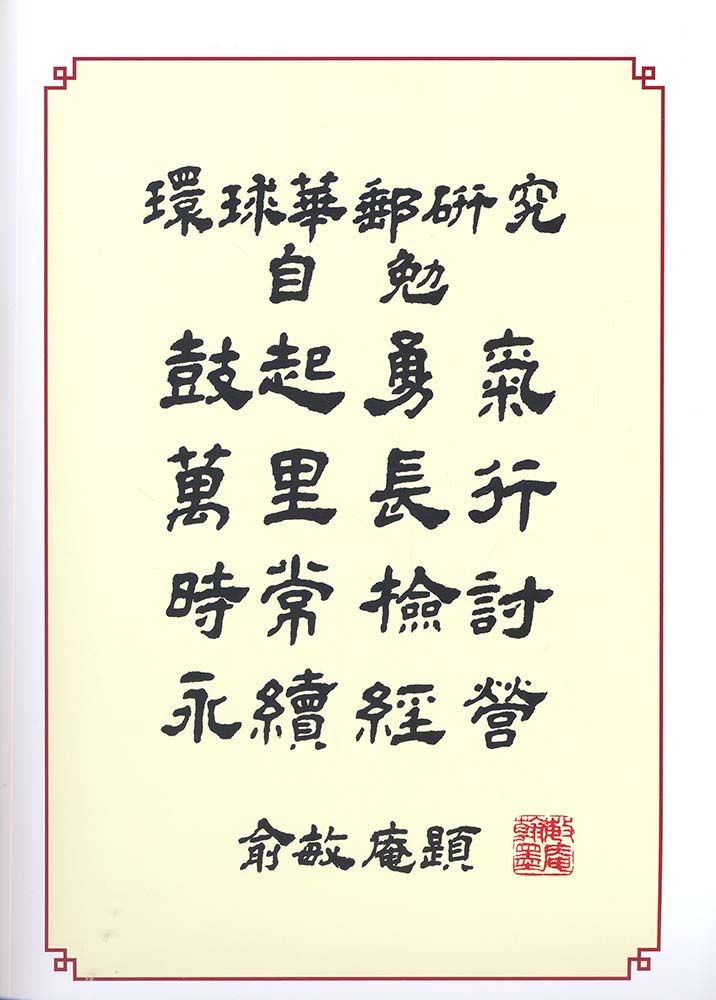 環球華郵研究
自勉
鼓起勇氣
萬里長行
時常檢討
永續經營
俞敏庵題
敏庵
翰墨